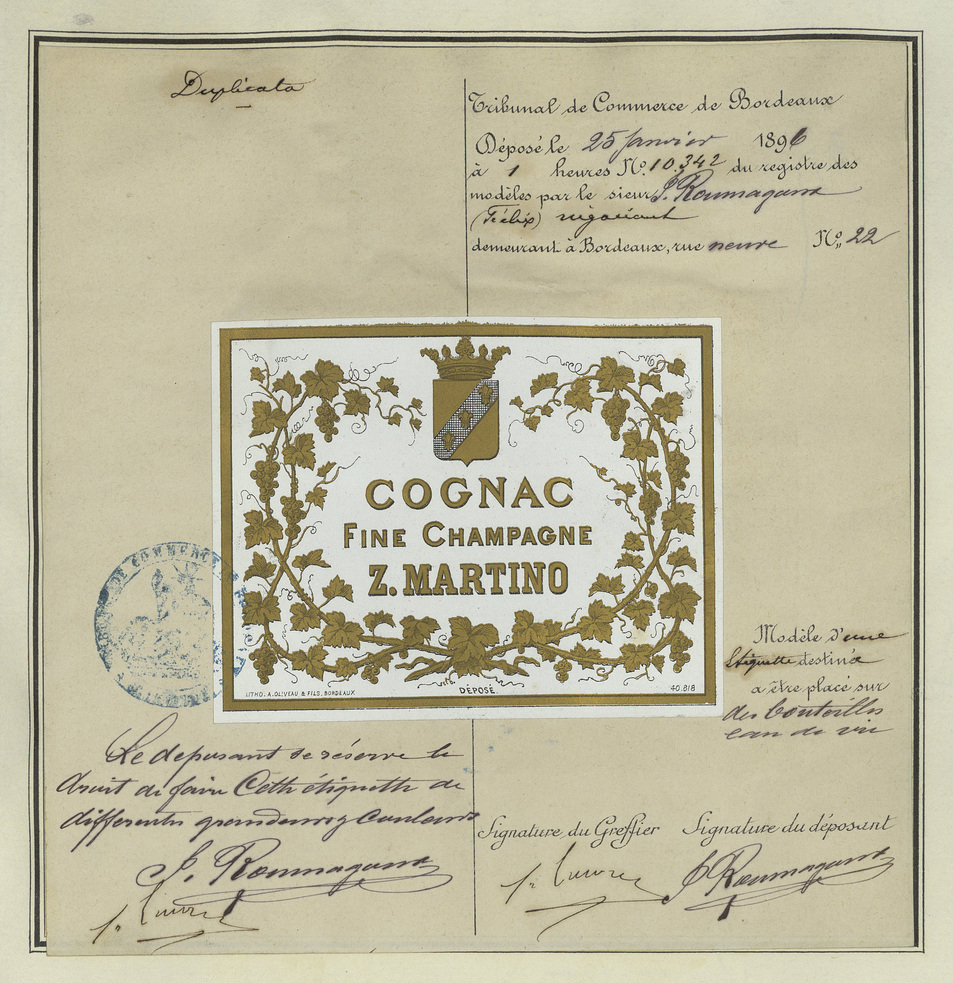 Duplicata
Tribunal de Commerce de Bordeaux
Déposé le 25 Janvier 1896
à 1 heures No. 10.342 du registre des
modèles par le sieur
(Félix) négociant
demeurant à Bordeaux, rue neuve No. 22
COGNAC
FINE CHAMPAGNE
Z. MARTINO
LITHO. A. OLIVEAU & FILS, BORDEAUX
DÉPOSÉ
40.818
DE COMMERCE
Modèle d'une
Etiquette destinée
à être placé sur
des bouteilles
eau de vie
Le déposant se réserve le
droit de faire Cette étiquette de
differentes grandeurs & couleurs
Signature du Greffier Signature du déposant